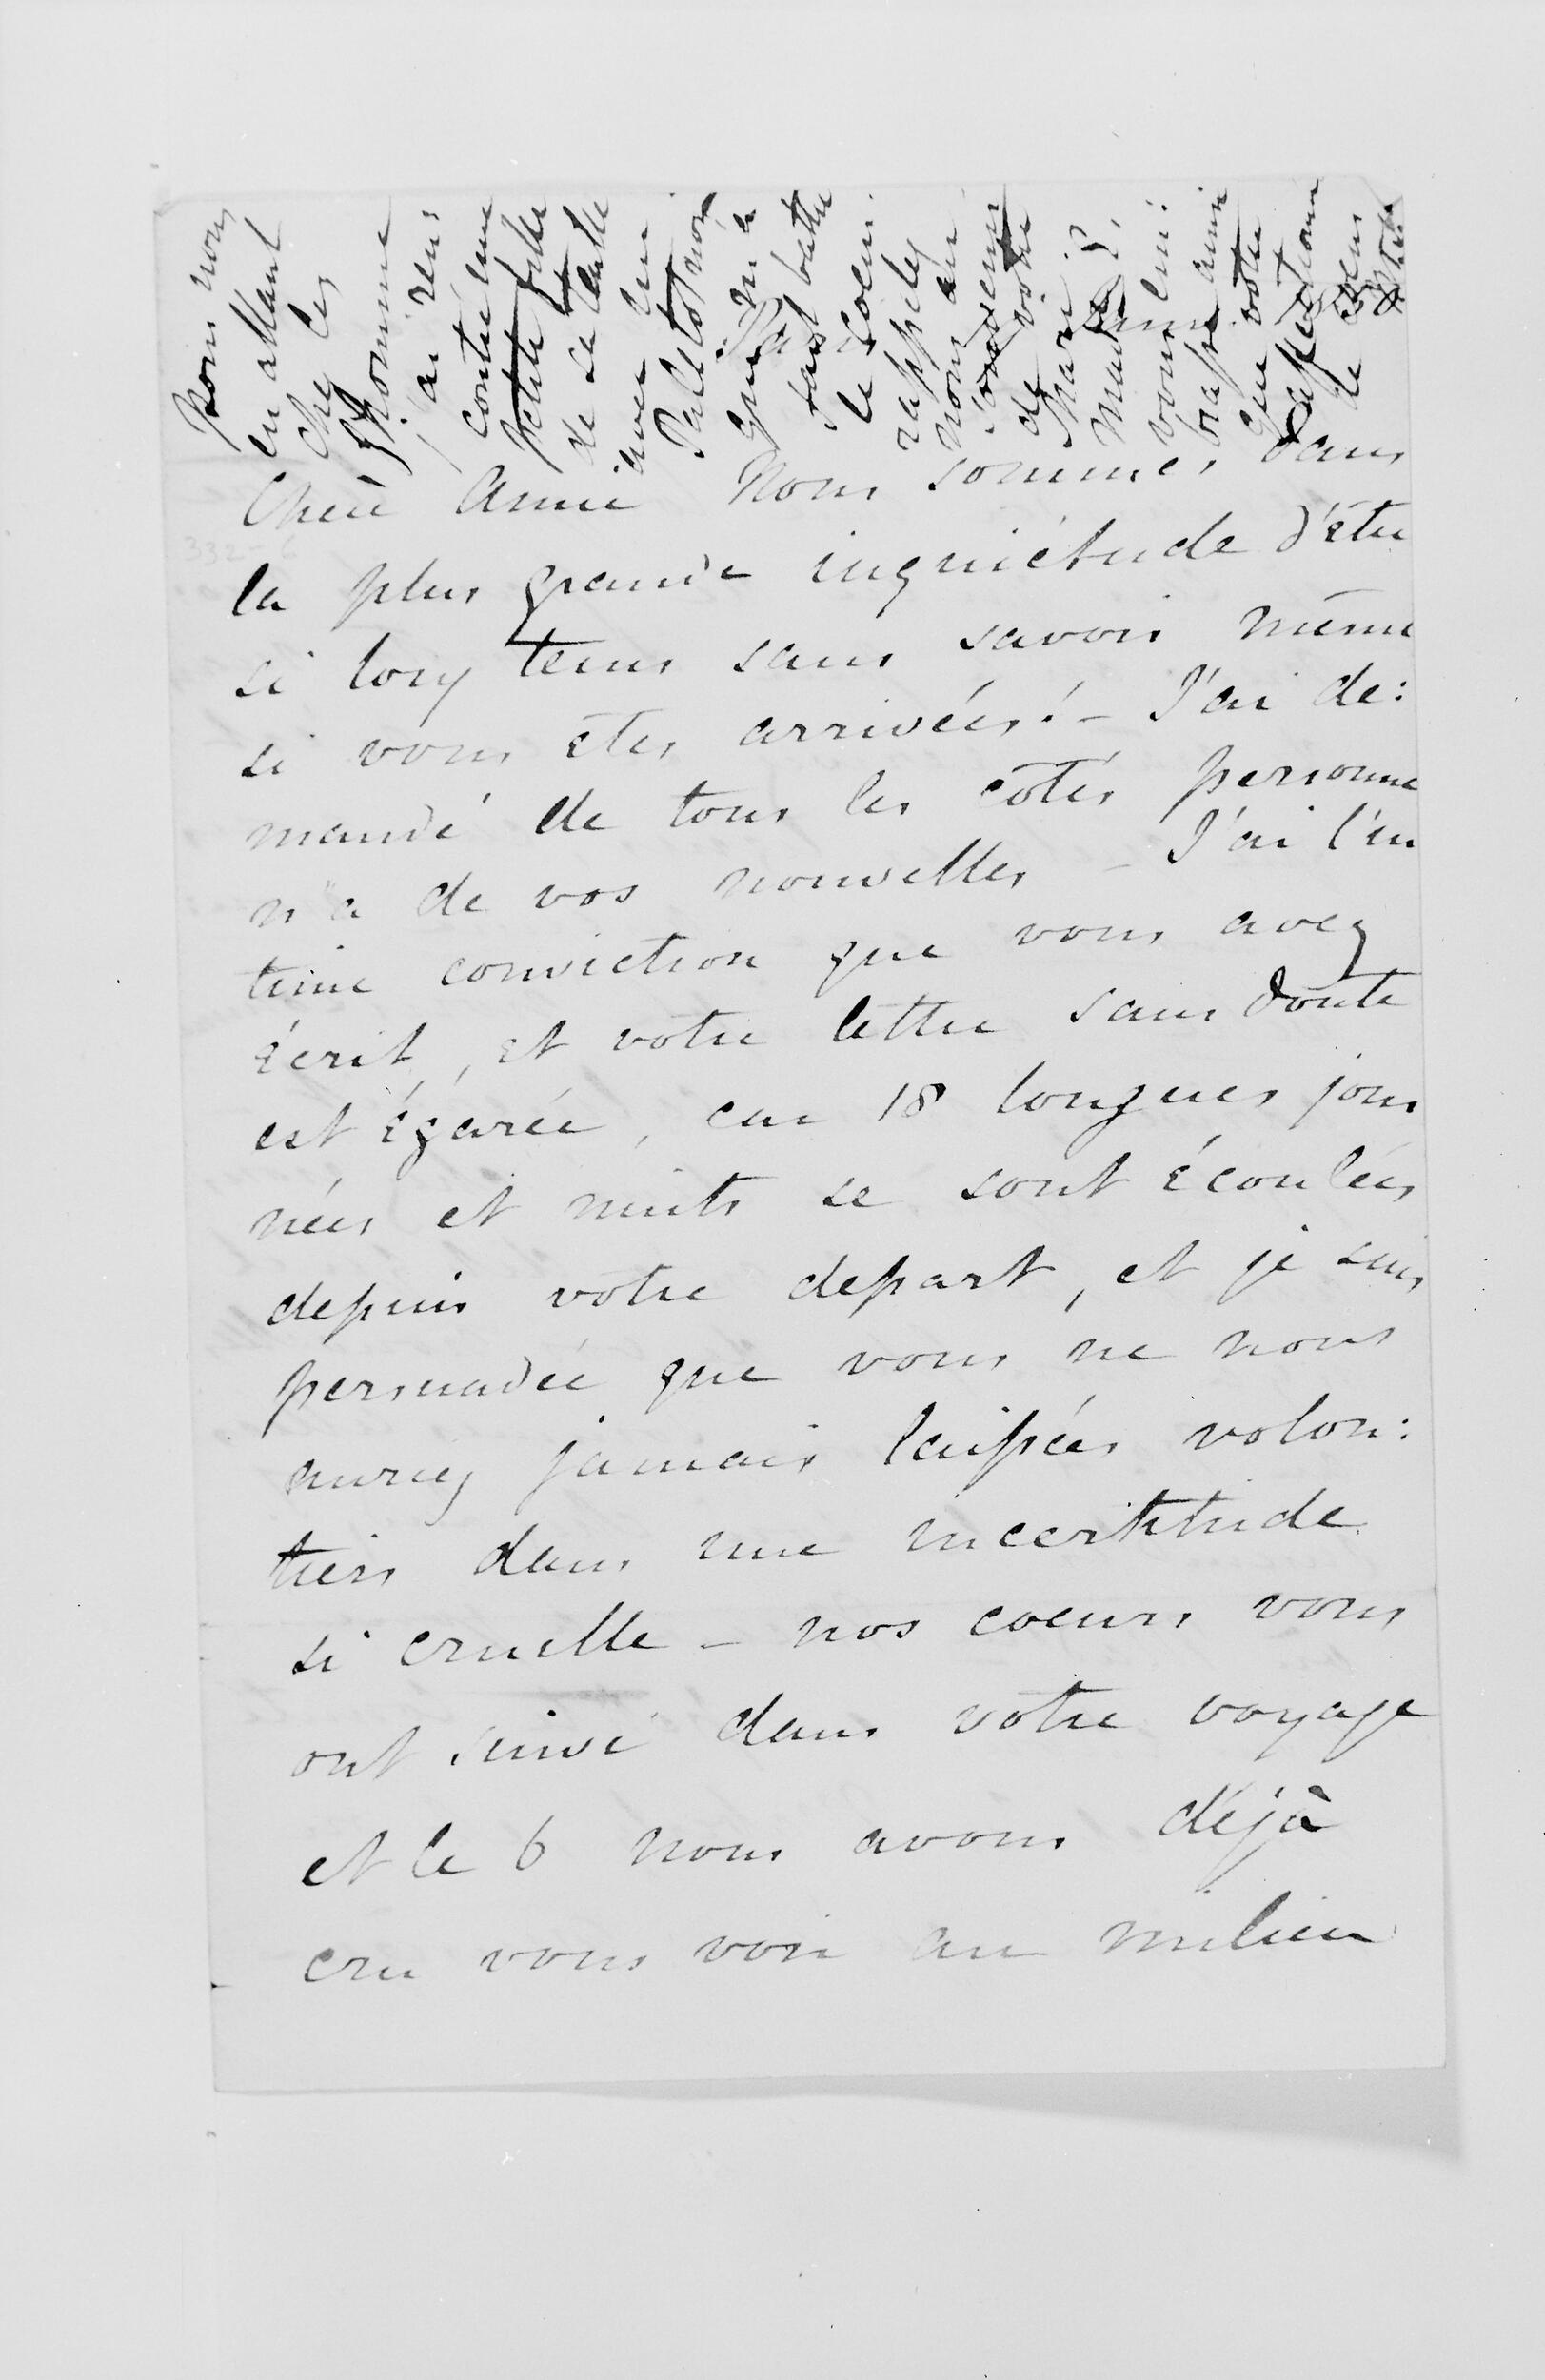 Chère Amie Nous sommes dans
la plus grande inquiétude d'être
si long tems sans savoir même
si vous êtes arrivées! – J'ai de:
mandé de tous les côtés personne
n'a de vos nouvelles – J'ai l'in
time conviction que vous avez
écrit, et votre lettre sans doute
est égarée, car 18 longues jour
nées et nuits se sont écoulées
depuis votre depart, et je suis
persuadée que vous ne nous
auriez jamais laissées volon:
tiers dans une incertitude
si cruelle – nos coeurs vous
ont suivi dans votre voyage
et le 6 nous avons déjà
cru vous voir au milieu
Pour nous
en allant
chez les
j'ai ren:
contré une
petite fille
de sa taille
avec un
Paletot noir
qui m'a
fait battre
le coeur.
rappelez
nous au
souvenir
de votre
Mari &amp;
vous em:
brasse amie
que votre
affection
de